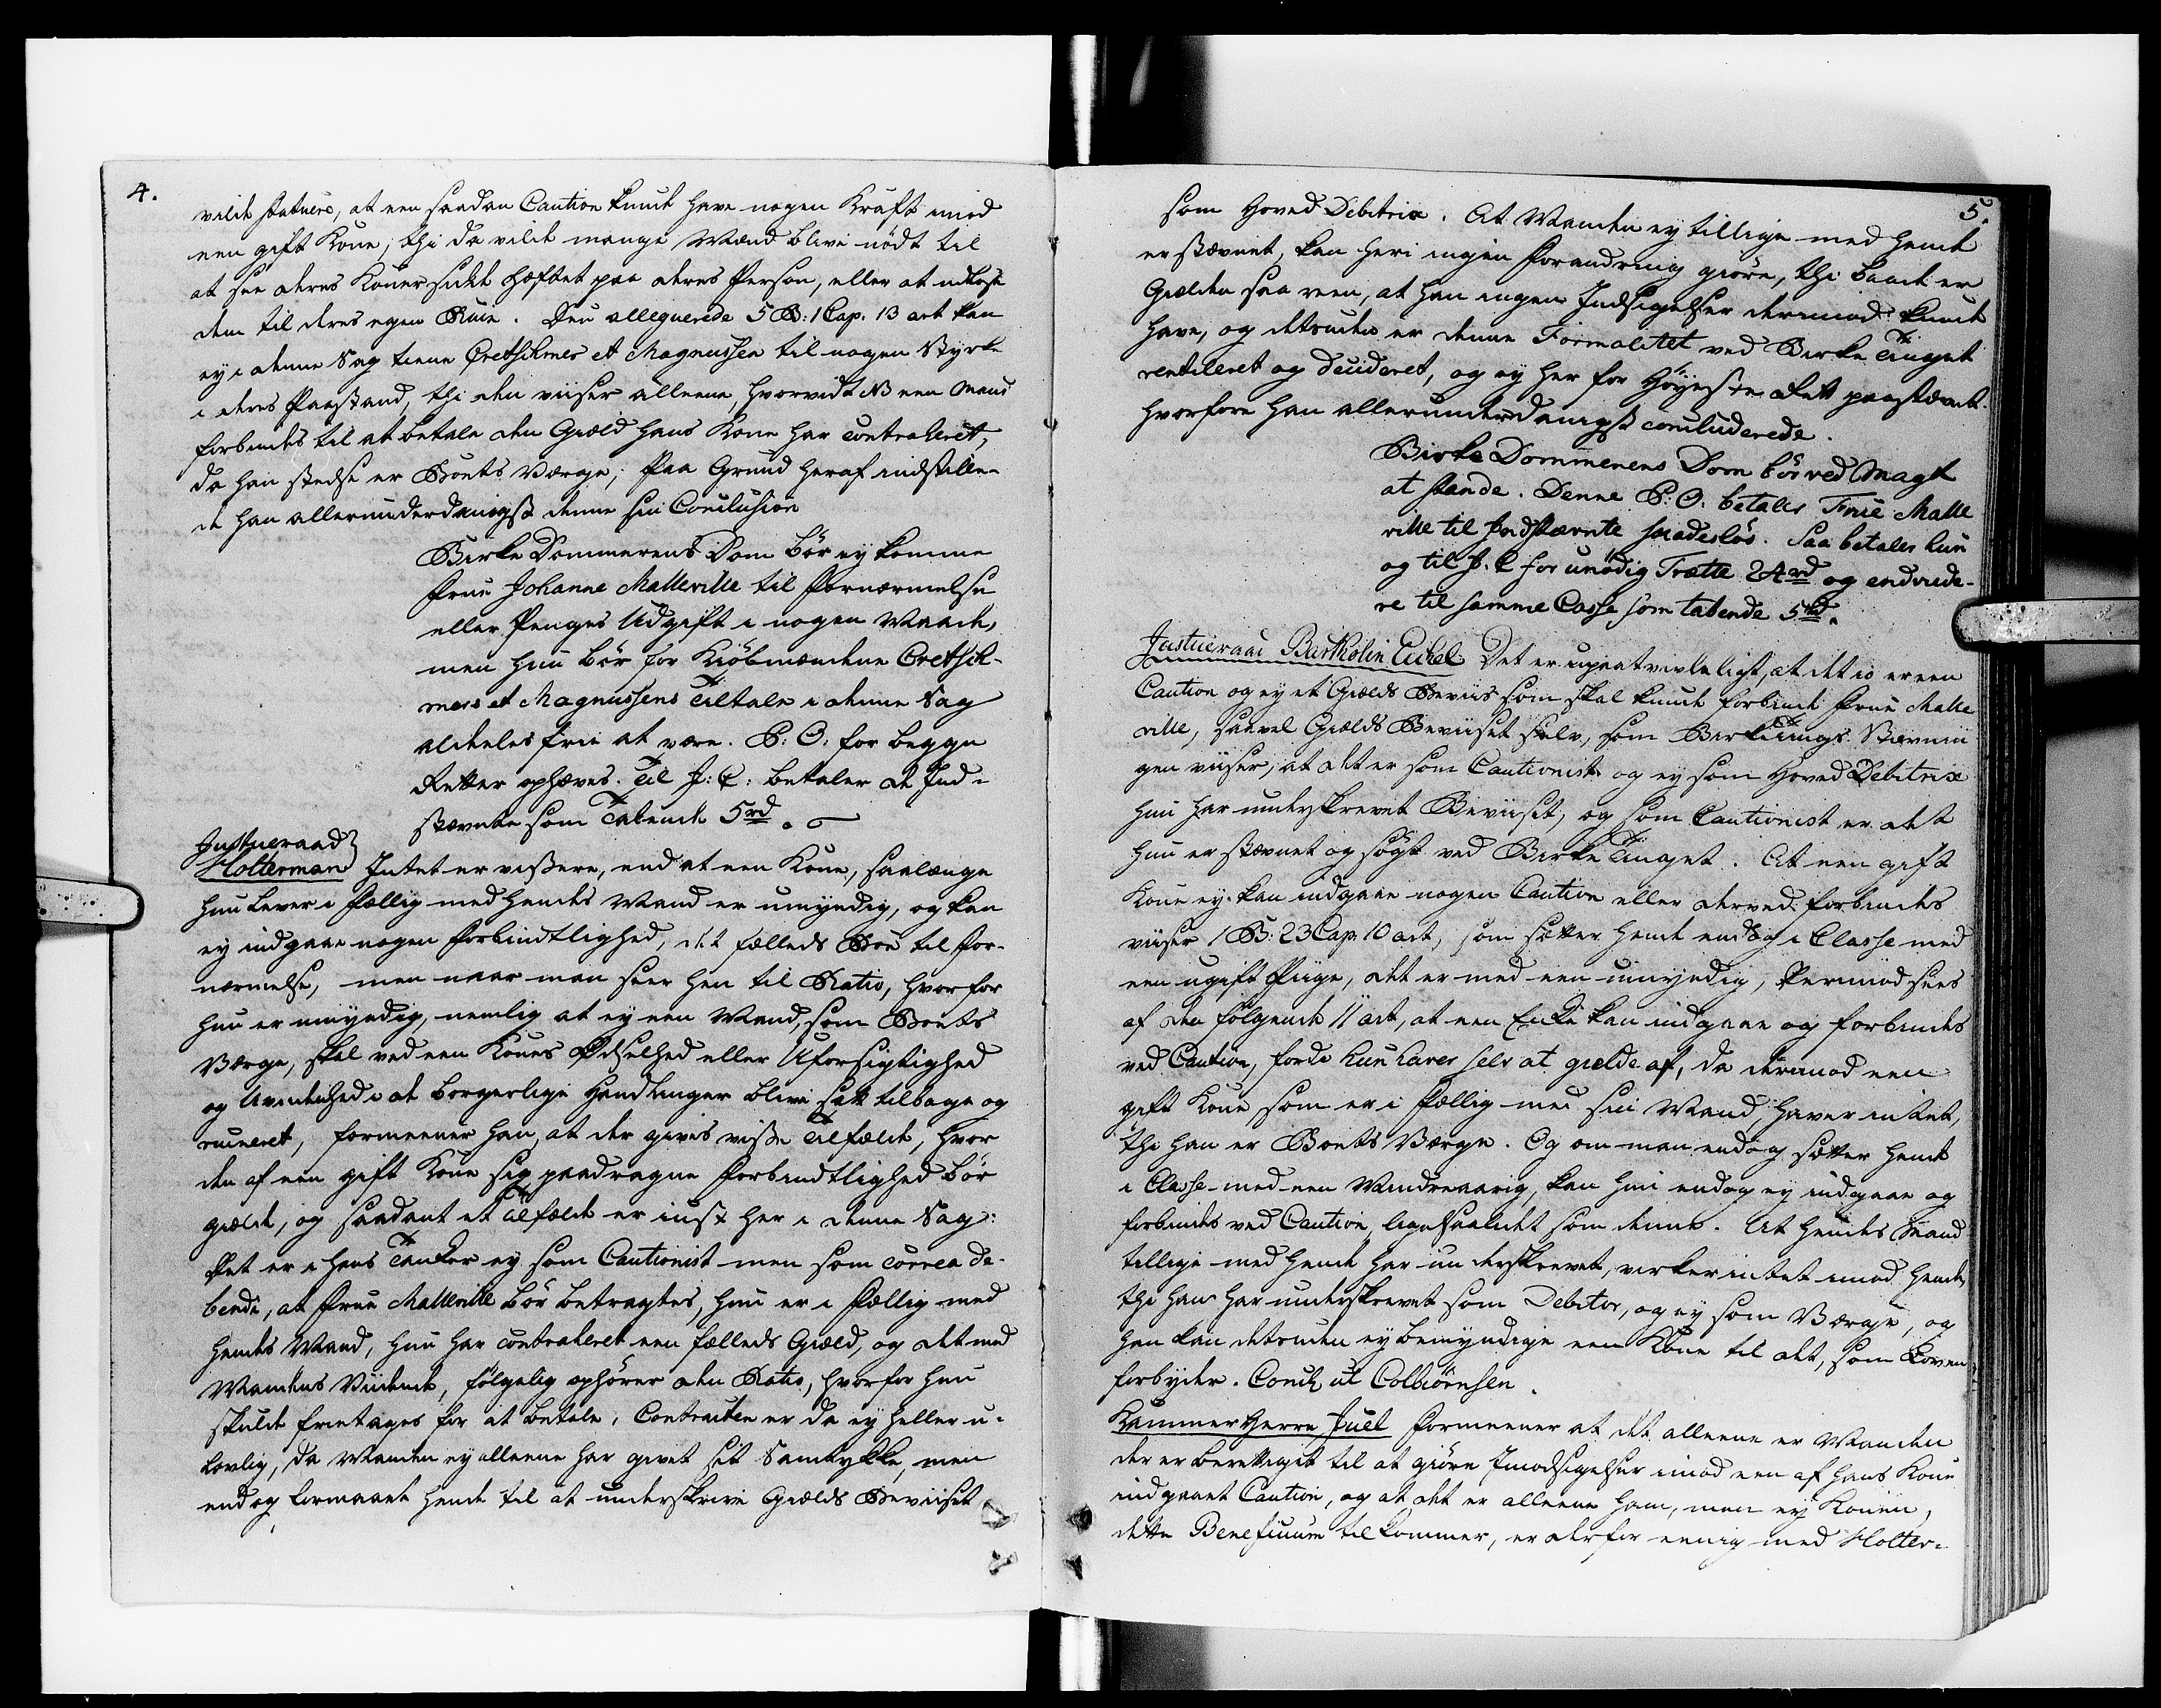 4.
vilde statuere, at een saadan Caution kunde have nogen Kraft imod
een gift Kone; thi da vilde mange Mænd blive nødt til
at see deres Koner sidde heftet paa deres Person, eller at udløse
dem til deres egen Ruin. Den alleguerede 5 B: 1 Cap. 13 art kan
ey i denne Sag tiene Oretsikmes et Magnussen til nogen Styrke
i deres Paastand, thi den viiser alleene, hvorvidt NB een Mand
forbindes til at betale den Gield hans Kone har contraheret,
da han stedse er Boets Værge; Paa Grund heraf indstille-
de han allerunderdanigst denne sin Conclusion
Birke Dommerens Dom bør ey komme
Frue Johanne Malleville til Fornærmelse
eller Penges Udgift i nogen Maade,
men hun bør for Kiøbmændene Oretsik-
mes et Magnussens Tiltale i denne Sag
aldeles frie at være. P: O. for begge
Retter ophæves. Til J: C: betaler de Ind-
stævnte som Tabende 5 rd.
Justiceraad
Holterman Intet er vissere, end at een Kone, saalænge
hun lever i Fællig med hendes Mand er umyndig, og kan
ey indgaae nogen Forbindtlighed, det fælleds Boe til For-
nærmelse, men naar man seer hen til Ratio, hvorfor
hun er umyndig, nemlig at ey een Mand, som Boets
Værge, skal ved een Kones Ødselhed eller Uforsigtighed
og Uvidenhed i de borgerlige Handlinger blive satt tilbage og
ruineret, formeener han, at der gives visse Tilfælde, hvor
den af een gift Kone sig paadragne Forbindtlighed bør
gielde, og saadant et Tilfælde er iust her i denne Sag:
Det er i hans Tanker ey som Cautionist men som correa de-
bendi, at Frue Malleville bør betragtes, hun er i Fællig med
hendes Mand, hun har contraheret een fælleds Gield, og det med
Mandens Vidende, følgelig ophører den Ratio, hvorfor hun
skulde fritages for at betale, Contracten er da ey heller u-
lovlig, da Manden ey alleene har givet sit Samtykke, men
endog formaaet hende til at underskrive Gields Beviiset
5.
som Hoved Debitrix. At Manden ey tillige med hende
er stævnet, kan heri ingen Forandring giøre, thi baade er
Gielden saa reen, at han ingen Indsigelser derimod kunde
have, og desuden er denne Formalitet ved Birke Tinget
ventileret og decideret, og ey her for Høyeste Rett paastævnt.
Hvorfore han allerunderdanigst concluderede.
Birke Dommerens Dom bør ved Magt
at stande. Denne P: O. betaler Frue Malle
ville til Indstævnte skadesløs. Saa betaler hun
og til J. C for unødig Trætte 24 rd og endvide-
re til samme Casse som tabende 5 rd.
Justiceraad Bartholin Eichel Det er upaatvivleligt, at det io er een
Caution og ey et Gields Beviis som skal kunde forbinde Frue Malle
ville, saavel Gields Beviiset selv, som Birketings Stævnin
gen viiser, at det er som Cautionist og ey som Hoved Debitrix
hun har underskrevet Beviiset, og som Cautionist er det
hun er stævnet og søgt ved Birke Tinget. At een gift
Kone ey kan indgaae nogen Caution eller derved forbindes
viiser 1 B: 23 Cap 10 art, som sætter hende endog i Classe med
een ugift Piige, det er med een umyndig, Derimod sees
af den følgende 11 art, at een Enke kan indgaae og forbindes
ved Caution, fordi hun haver selv at gielde af, da derimod een
gift Kone som er i Fællig med sin Mand, haver intet,
thi han er Boets Værge. Og om man endog sætter hende
i Classe med een Mindreaarig, kan hun endog ey indgaae og
forbindes ved Caution ligesaalidet som denne. At hendes Mand
tillige med hende har underskrevet, virker intet imod hende,
thi han har underskrevet som Debitor, og ey som Værge, og
han kan desuden ey bemyndige een Kone til det, som Loven
forbyder. Concl: ut Colbiørnsen.
Kammer Herre Juel formeener at det alleene er Manden
der er berettiget til at giøre Imodsigelser imod een af hans Kone
indgaaet Caution, og at det er alleene ham, men ey Konen,
dette Beneficium tilkommer, er derfor eenig med Holter-